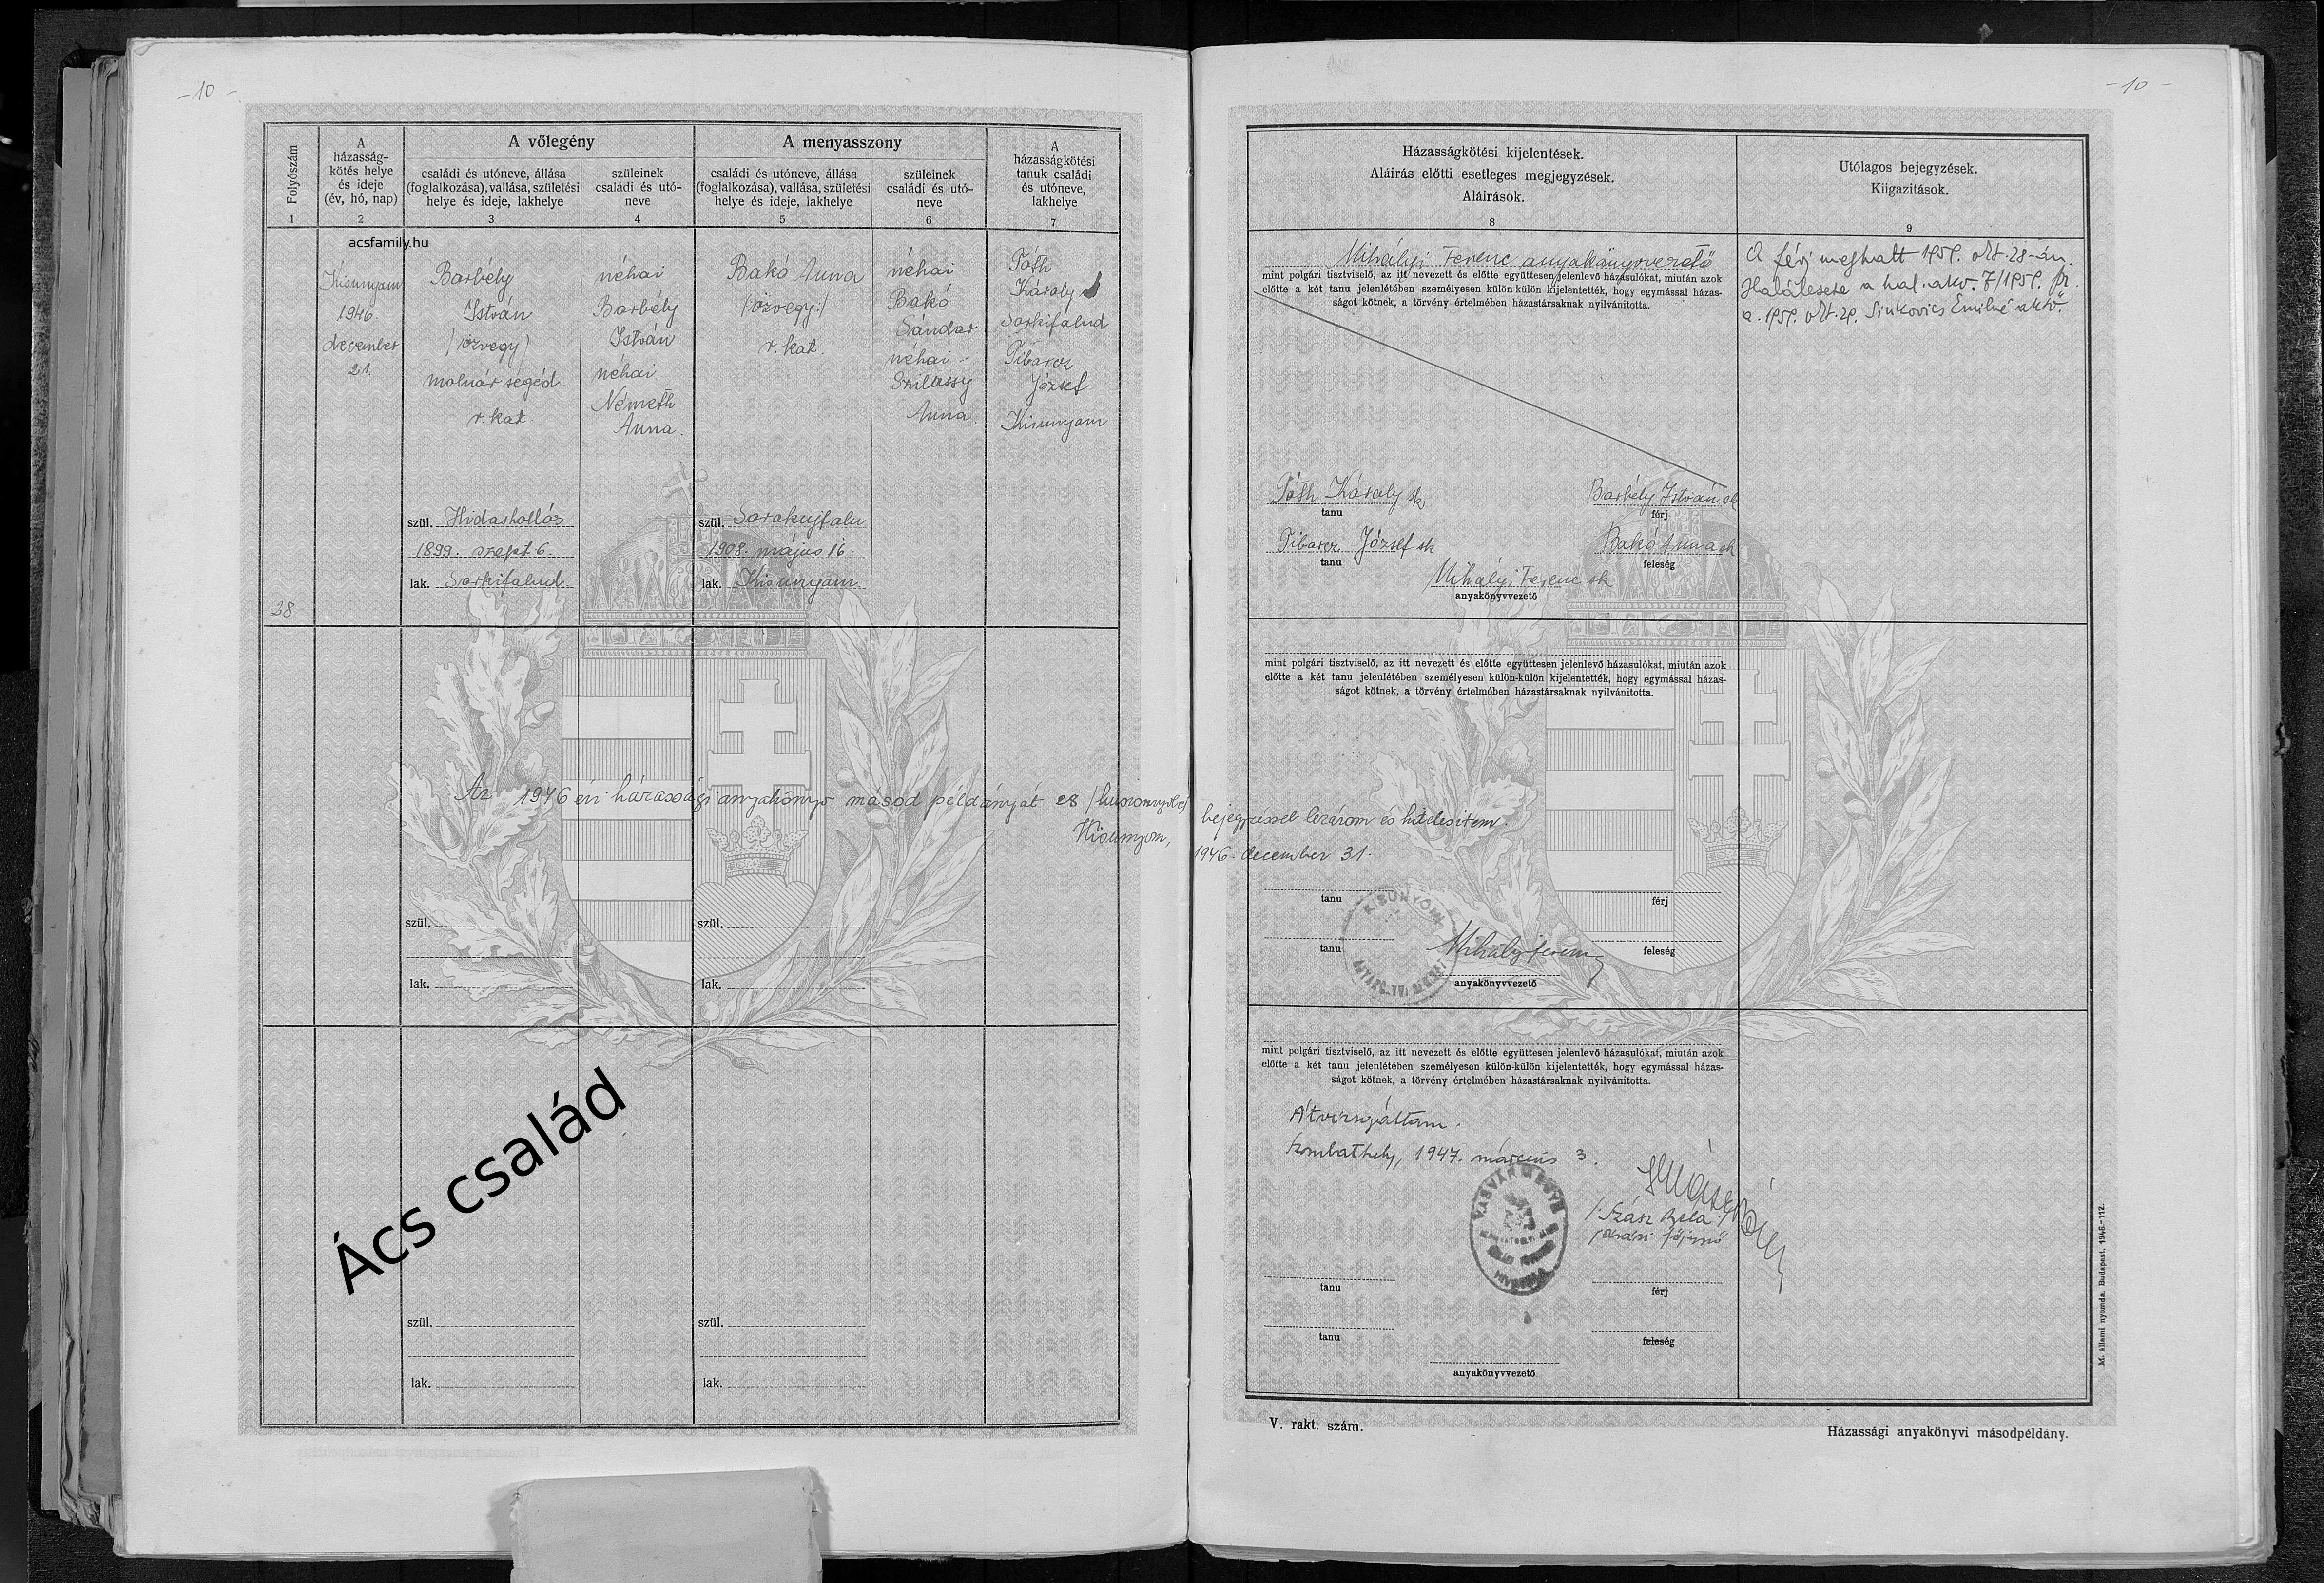 - 10 -
Folyószám
A
házasság-
kötés helye
és ideje
(év, hó, nap)
A vőlegény
családi és utóneve, állása
(foglalkozása), vallása, születési
helye és ideje, lakhelye
szüleinek
családi és utó-
neve
A menyasszony
családi és utóneve, állása
(foglalkozása), vallása, születési
helye és ideje, lakhelye
szüleinek
családi és utó-
neve
A
házasságkötési
tanuk családi
és utóneve,
lakhelye
1 2 3 4 5 6 7
acsfamily.hu
Kisunyom
1946.
december
21.
Borbély
István
(özvegy)
molnár segéd
r. kat.
néhai
Borbély
István
néhai
Németh
Anna.
Bakó Anna
/özvegy:/
r. kat.
néhai
Bakó
Sándor
néhai
Szilassy
Anna.
Tóth
Károly
Sorkifalud
Tibarcz
József
Kisunyom
szül. Hidashollós
1899. szept. 6.
lak. Sorkifalud
szül. Sorokujfalu
1908. május 16.
lak. Kisunyom.
28
Az 1946 évi házassági anyakönyv másod példányát 28 /huszonnyolc/
Kisunyom,
szül.
lak.
szül.
lak.
Ács család
szül.
lak.
szül.
lak.
- 10 -
Házasságkötési kijelentések.
Aláirás előtti esetleges megjegyzések.
Aláirások.
8
Utólagos bejegyzések.
Kiigazitások.
9
Mihályi Ferenc anyakönyvvezető
mint polgári tisztviselő, az itt nevezett és előtte együttesen jelenlevő házasulókat, miután azok
előtte a két tanu jelenlétében személyesen külön-külön kijelentették, hogy egymással házas-
ságot kötnek, a törvény értelmében házastársaknak nyilvánitotta.
A férj meghalt 1959. okt. 28-án.
Halálesete a hal. akv. 7/1959. fsz.
a. 1959. okt. 29. Sinkovics Emilné akvő.
Tóth Károly sk
tanu
Borbély István sk
férj
Tibarcz József sk
tanu
Bakó Anna sk
feleség
Mihályi Ferenc sk
anyakönyvvezető
mint polgári tisztviselő, az itt nevezett és előtte együttesen jelenlevő házasulókat, miután azok
előtte a két tanu jelenlétében személyesen külön-külön kijelentették, hogy egymással házas-
ságot kötnek, a törvény értelmében házastársaknak nyilvánitotta.
bejegyzéssel lezárom és hitelesitem.
1946. december 31.
tanu
férj
KISUNYOM
tanu
Mihályi Ferenc
feleség
anyakönyvvezető
mint polgári tisztviselő, az itt nevezett és előtte együttesen jelenlevő házasulókat, miután azok
előtte a két tanu jelenlétében személyesen külön-külön kijelentették, hogy egymással házas-
ságot kötnek, a törvény értelmében házastársaknak nyilvánitotta.
Átvizsgáltam.
Szombathely, 1947. március 3.
VASVÁRMEGYE
/: Szász Béla :/
járási főjegyző
tanu
férj
tanu
feleség
anyakönyvvezető
V. rakt. szám.
Házassági anyakönyvi másodpéldány.
M. állami nyomda. Budapest. 1946.-112.